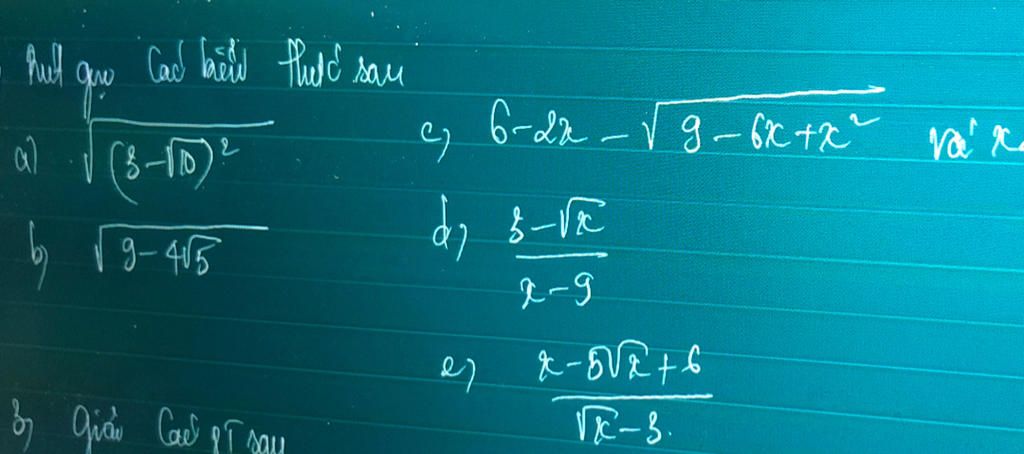 Rút gọn các biểu thức sau
a) √(3-√10)²
b) √9-4√5
c) 6-2x-√9-6x+x² với x
d) 3-√x / x-9
e) x-5√x+6 / √x-3.
3) Giải các PT sau